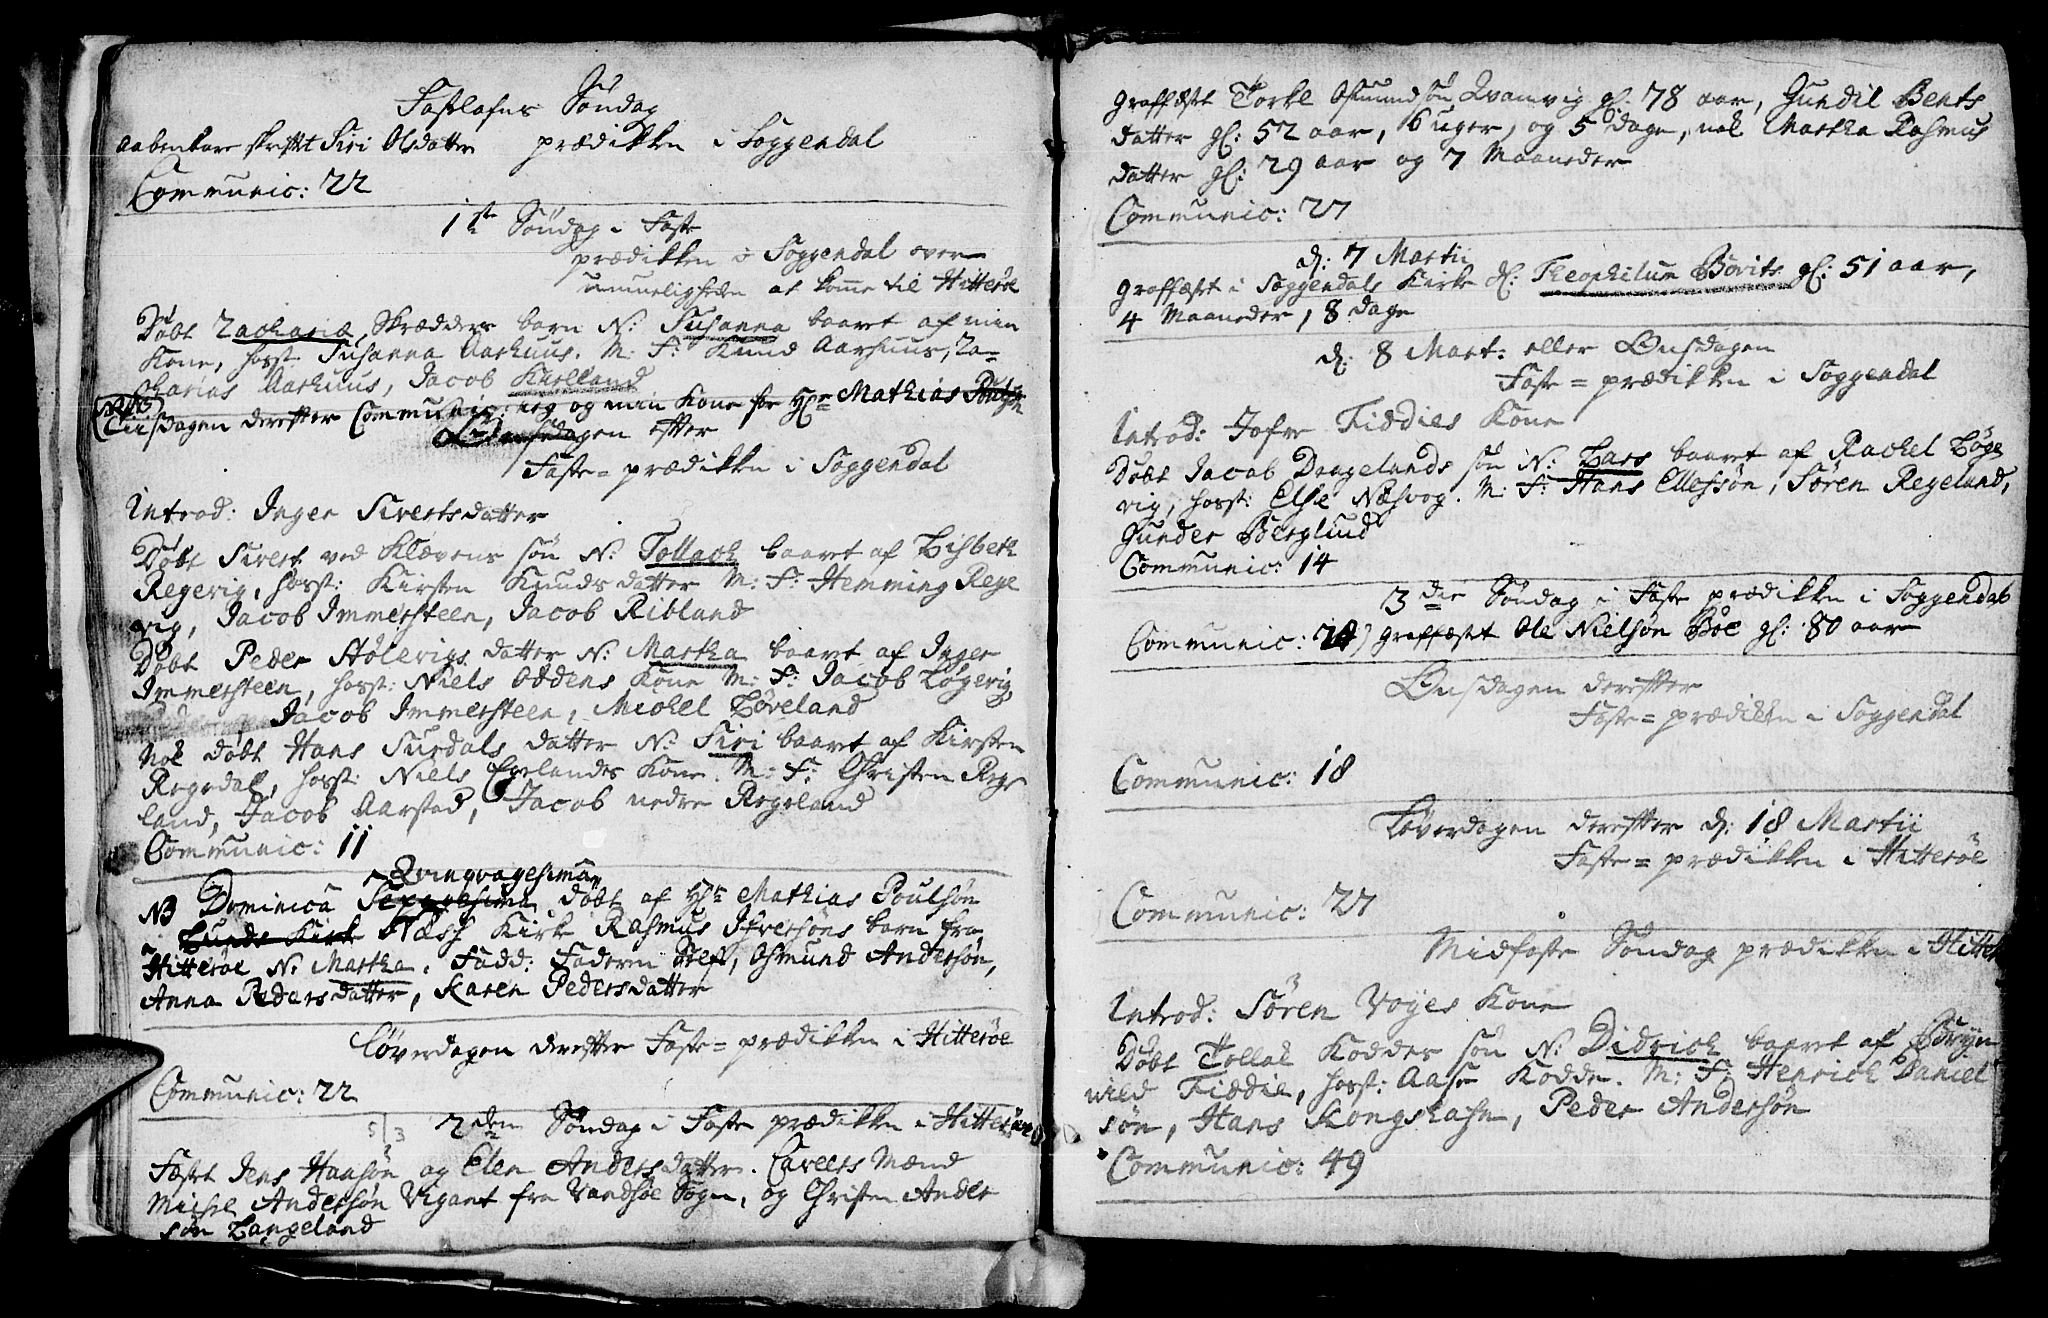 Fastelafns Söndag
aabenbare skriftet Siri Olsdatter prædikken i Soggendal
Communic: 22
1ste Söndag i Faste
prædikken i Soggendal over
umueligheden at komme til Hitteröe
Döbt Zachariæ Skrædders barn N: Susanna baaret af min
Kone, hosst: Susanna Aarhuus. M: F: Knud Aarhuus, Za-
charias Aarhuus, Jacob Kielland
Tiisdagen derefter Communic: jeg og min Kone for Hr Mathias
Onsdagen efter
Faste=prædikken i Soggendal
Introd: Inger Sivertsdatter
Döbt Sivert ved Klevens sön N: Tollach baaret af Lisbeth
Regevig, hosst: Kirsten Knudsdatter M: F: Hemming Rege
vig, Jacob Immersteen, Jacob Ribland
Döbt Peder Stölevigs datter N: Martha baaret af Inger
Immersteen, hosst: Niels Oddens Kone M: F: Jacob Lögevig,
Jacob Immersteen, Michel Löveland
Nok döbt Hans Surdals datter N: Siri baaret af Kirsten
Regedal, hosst: Niels Egelandes Kone. M: F: Christen Rege
land, Jacob Aarstad, Jacob nedre Regeland
Communic: 11
Qvinqvagesima
NB Dominica Sexagesima döbt af Hr Mathias Poulsön
Lunds Kirk Næss Kirke Rasmus Ifversöns barn fra
Hitteröe N: Martha. Fadd: Faderen Self, Osmund Andersön,
Anna Pedersdatter, Karen Pedersdatter
Löverdagen derefter Faste=prædikken i Hitteröe
Communic: 22
5/3 2den Söndag i Faste prædikken i Hitteröe
Fæstet Jens Hansön og Elen Andersdatter. Caveers Mænd
Michel Andersön Vigant fra Vandsöe Sogn, og Christen Ander
sön Langeland
Graffæstet Torkel Osmundsön Qvanvig gl: 78 aar, Gundil Bents
datter gl: 52 aar, 6 uger, og 5 dage, nok Martha Rasmus
datter gl: 29 aar og 7 Maaneder
Communic: 27
d: 7 Martii
Graffæstet i Soggendals Kirke Theophilum Bovits gl: 51 aar,
4 Maaneder, 8 dage
d: 8 Mart: eller Onsdagen
Faste=prædikken i Soggendal
Introd: Jofre Fiddies Kone
Döbt Jacob Dragelands sön N: Lars baaret af Rachel Löge
vig, hosst: Else Næsvog. M: F: Hans Ellefsön, Sören Regeland,
Gunder Berglund
Communic: 14
3die Söndag i Faste prædikken i Soggendal
Communic: 20) Graffæstet Ole Nielsön Böe gl: 80 aar
Onsdagen derefter
Faste=prædikken i Soggendal
Communic: 18
Löverdagen derefter d: 18 Martii
Faste=prædikken i Hitteröe
Communic: 27
Midfaste Söndag prædikken i Hitter
Introd: Sören Voyes Kone
Döbt Tollak Koddes sön N: Didrich baaret af Bryn
nild Fiddie, hosst: Aase Kodde. M: F: Henrich Daniel
sön, Hans Kongshafn, Peder Andersön
Communic: 49